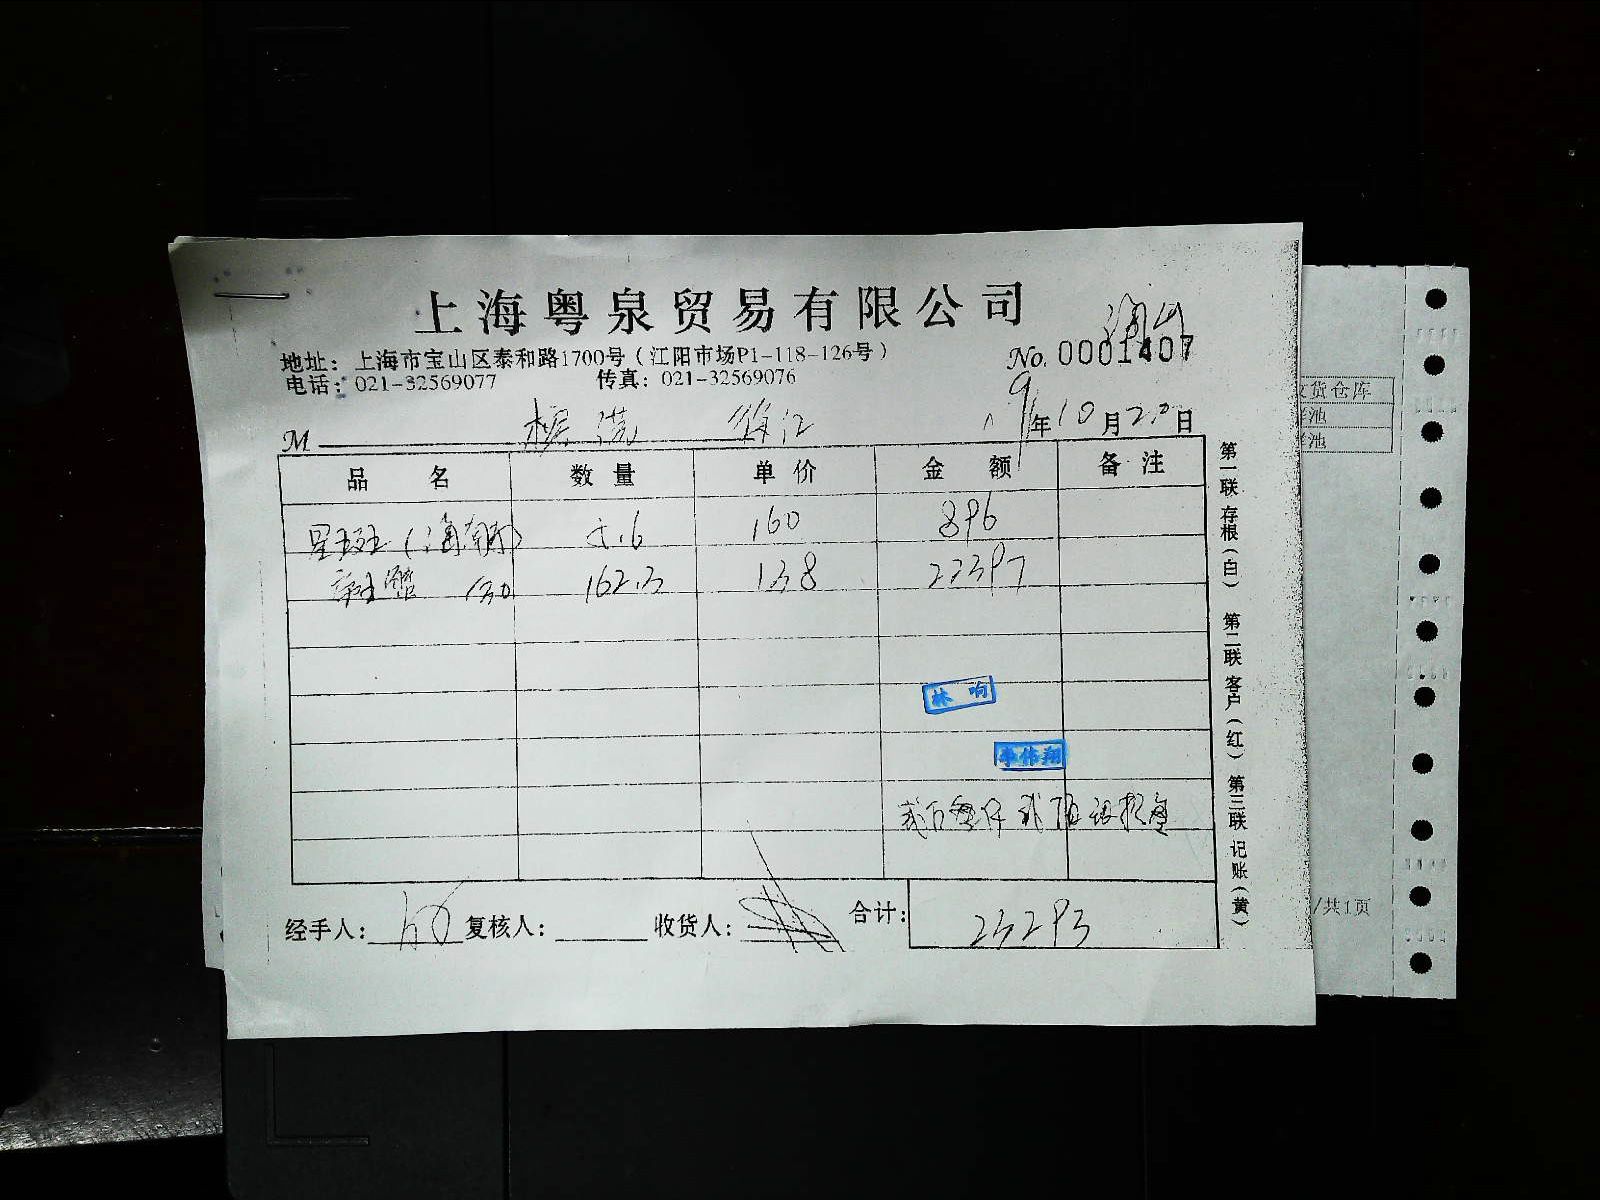 上海粤泉贸易有限公司
地址：上海市宝山区泰和路1700号（江阳市场P1-118-126号）
No. 0001407
电话：021-32569077 传真：021-32569076
M
19年10月20日
品名 数量 单价 金额 备注
星斑（海南） 5.6 160 896
162.3 138 22397
林响
李伟翔
经手人： 复核人： 收货人： 合计：23293
第一联 存根（白） 第二联 客户（红） 第三联 记账（黄）
收货仓库
鲜池
鲜池
/共1页